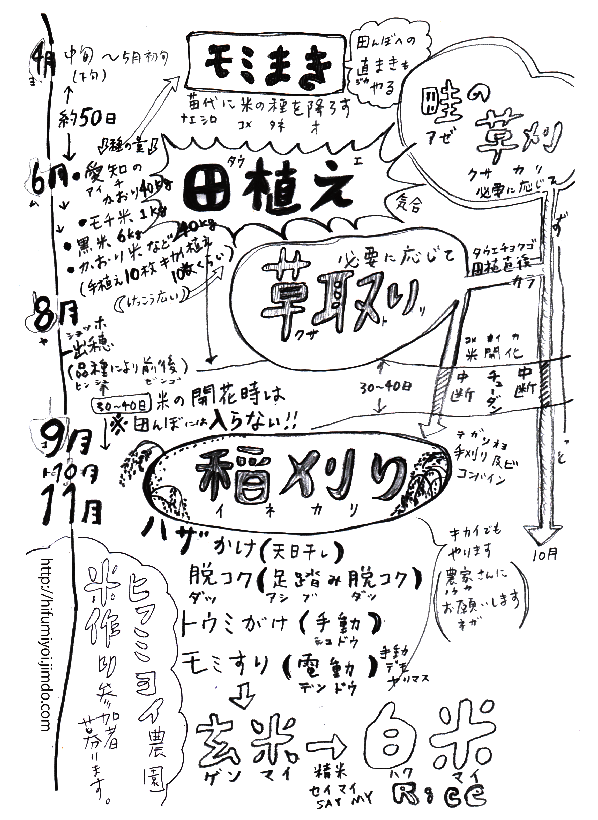 4月
中旬〜5月初旬
(下旬)
モミまき
田んぼへの
直まきも
やる
苗代に米の種を降ろす
ナエシロ コメ タネ オ
約50日
畦の
アゼ
草刈
クサ カリ
必要に応じて
6月
愛知の
アイチ
かおり40kg
モチ米 1kg
黒米 6kg
かおり米など40kg
(手植え10枚 キカイ植え
10枚くらい)
(けっこう広い)
田植え
タウエ
草取り
クサトリ
必要に応じて
タウエチョクゴ
田植直後
カラ
ずーっと
8月
シュッホ
出穂
(品種により前後)
ヒンシュ ゼンゴ
30〜40日 米の開花時は
※田んぼには入らない!!
30〜40日
コメ カイカ
米開花
中断
チューダン
中断
9月
10月
11月
稲刈り
イネカリ
テガリオヨ
手刈り及ビ
コンバイン
10月
ハザかけ(天日干し)
脱コク(足踏み脱コク)
ダッ アシブ ダッ
トウミがけ(手動)
シュドウ
モミすり(電動)
デンドウ
手動
デモ
ヤリマス
キカイでも
やります
農家さんに
ノウカ
お願いします
ネガ
玄米→白米
ゲンマイ
精米
セイマイ
SAY MY
ハクマイ
Rice
ヒフミヨイ農園
米作り参加者
募ります。
http://hifumiyoijimdo.com